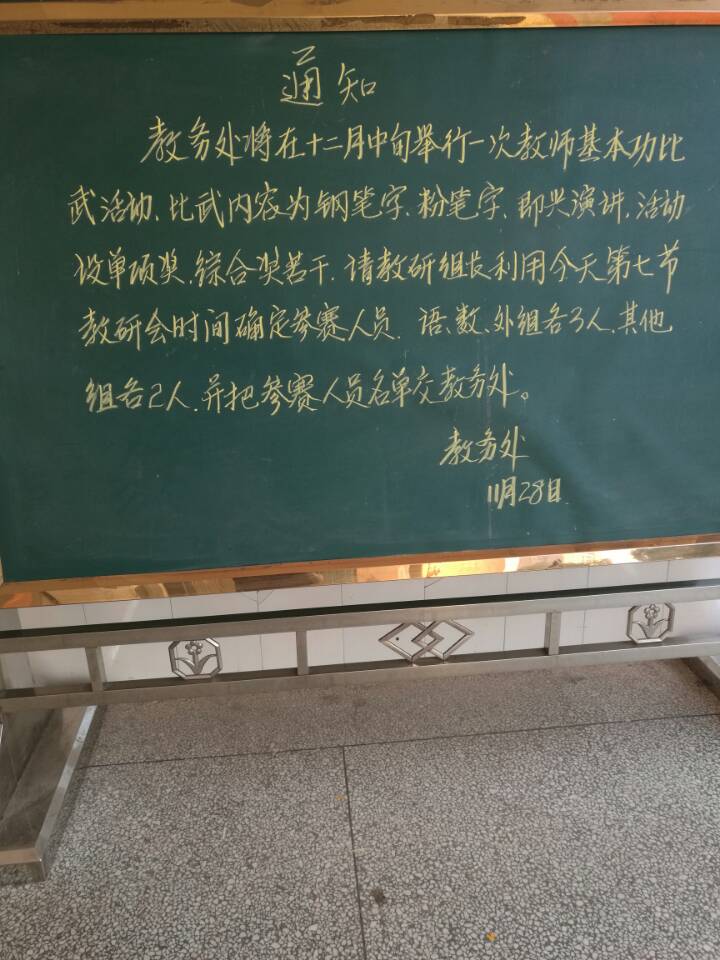 通知
教务处将在十二月中旬举行一次教师基本功比
武活动、比武内容为钢笔字、粉笔字、即兴演讲,活动
设单项奖、综合奖若干.请教研组长利用今天第七节
教研会时间确定参赛人员.语、数、外组各3人,其他
组各2人.并把参赛人员名单交教务处。
教务处
11月28日